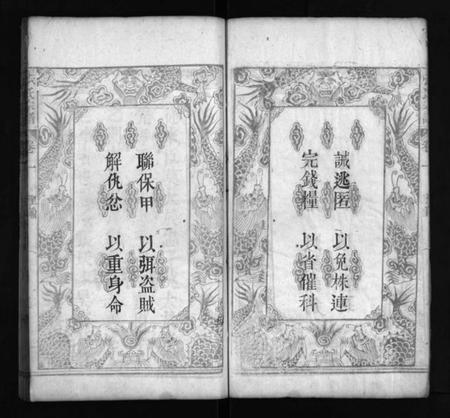 誡逃匿　以免株連
完錢糧　以省催科
聯保甲　以弭盜賊
解仇忿　以重身命